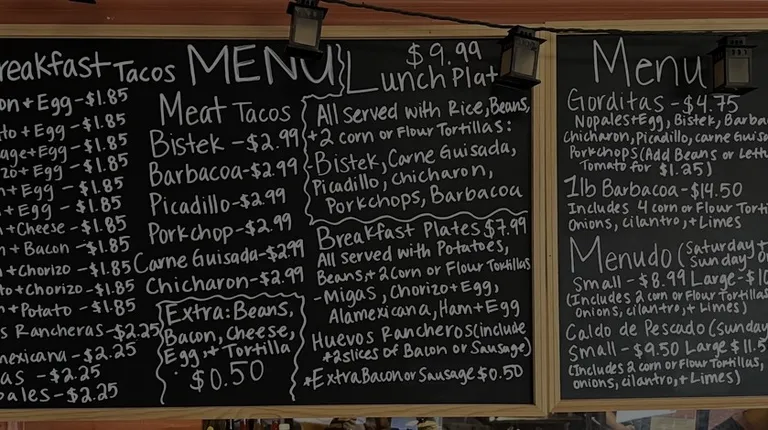 Breakfast Tacos MENU
+ Egg - $1.85
+ Egg - $1.85
+ Egg - $1.85
+ Egg - $1.85
+ Egg - $1.85
+ Egg - $1.85
+ Cheese - $1.85
+ Bacon - $1.85
+ Chorizo - $1.85
+ Chorizo - $1.85
+ Potato - $1.85
Rancheras - $2.25
- $2.25
- $2.25
- $2.25
Meat Tacos
Bistek - $2.99
Barbacoa - $2.99
Picadillo - $2.99
Porkchop - $2.99
Carne Guisada - $2.99
Chicharon - $2.99
Extra: Beans,
Bacon, Cheese,
Egg, + Tortilla
$0.50
$9.99
Lunch Plat
All served with Rice, Beans,
+ 2 corn or Flour Tortillas:
- Bistek, Carne Guisada,
Picadillo, Chicharon,
Porkchops, Barbacoa
Breakfast Plates $7.99
All served with Potatoes,
Beans, + 2 corn or Flour Tortillas
- Migas, Chorizo + Egg,
Alamexicana, Ham + Egg
Huevos Rancheros (include
+ 2 slices of Bacon or Sausage)
* Extra Bacon or Sausage $0.50
Menu
Gorditas - $4.75
Nopales + Egg, Bistek,
Chicharon, Picadillo, carne
Porkchops (Add Beans or
Tomato for $1.25)
1lb Barbacoa - $14.50
Includes 4 corn or Flour
Onions, cilantro, + Limes
Menudo (Saturday +
Sunday
Small - $8.99 Large -
(Includes 2 corn or Flour Tortillas
Onions, cilantro, + Limes)
Caldo de Pescado (Sunday
Small - $9.50 Large
(Includes 2 corn or Flour Tortillas,
onions, cilantro, + Limes)